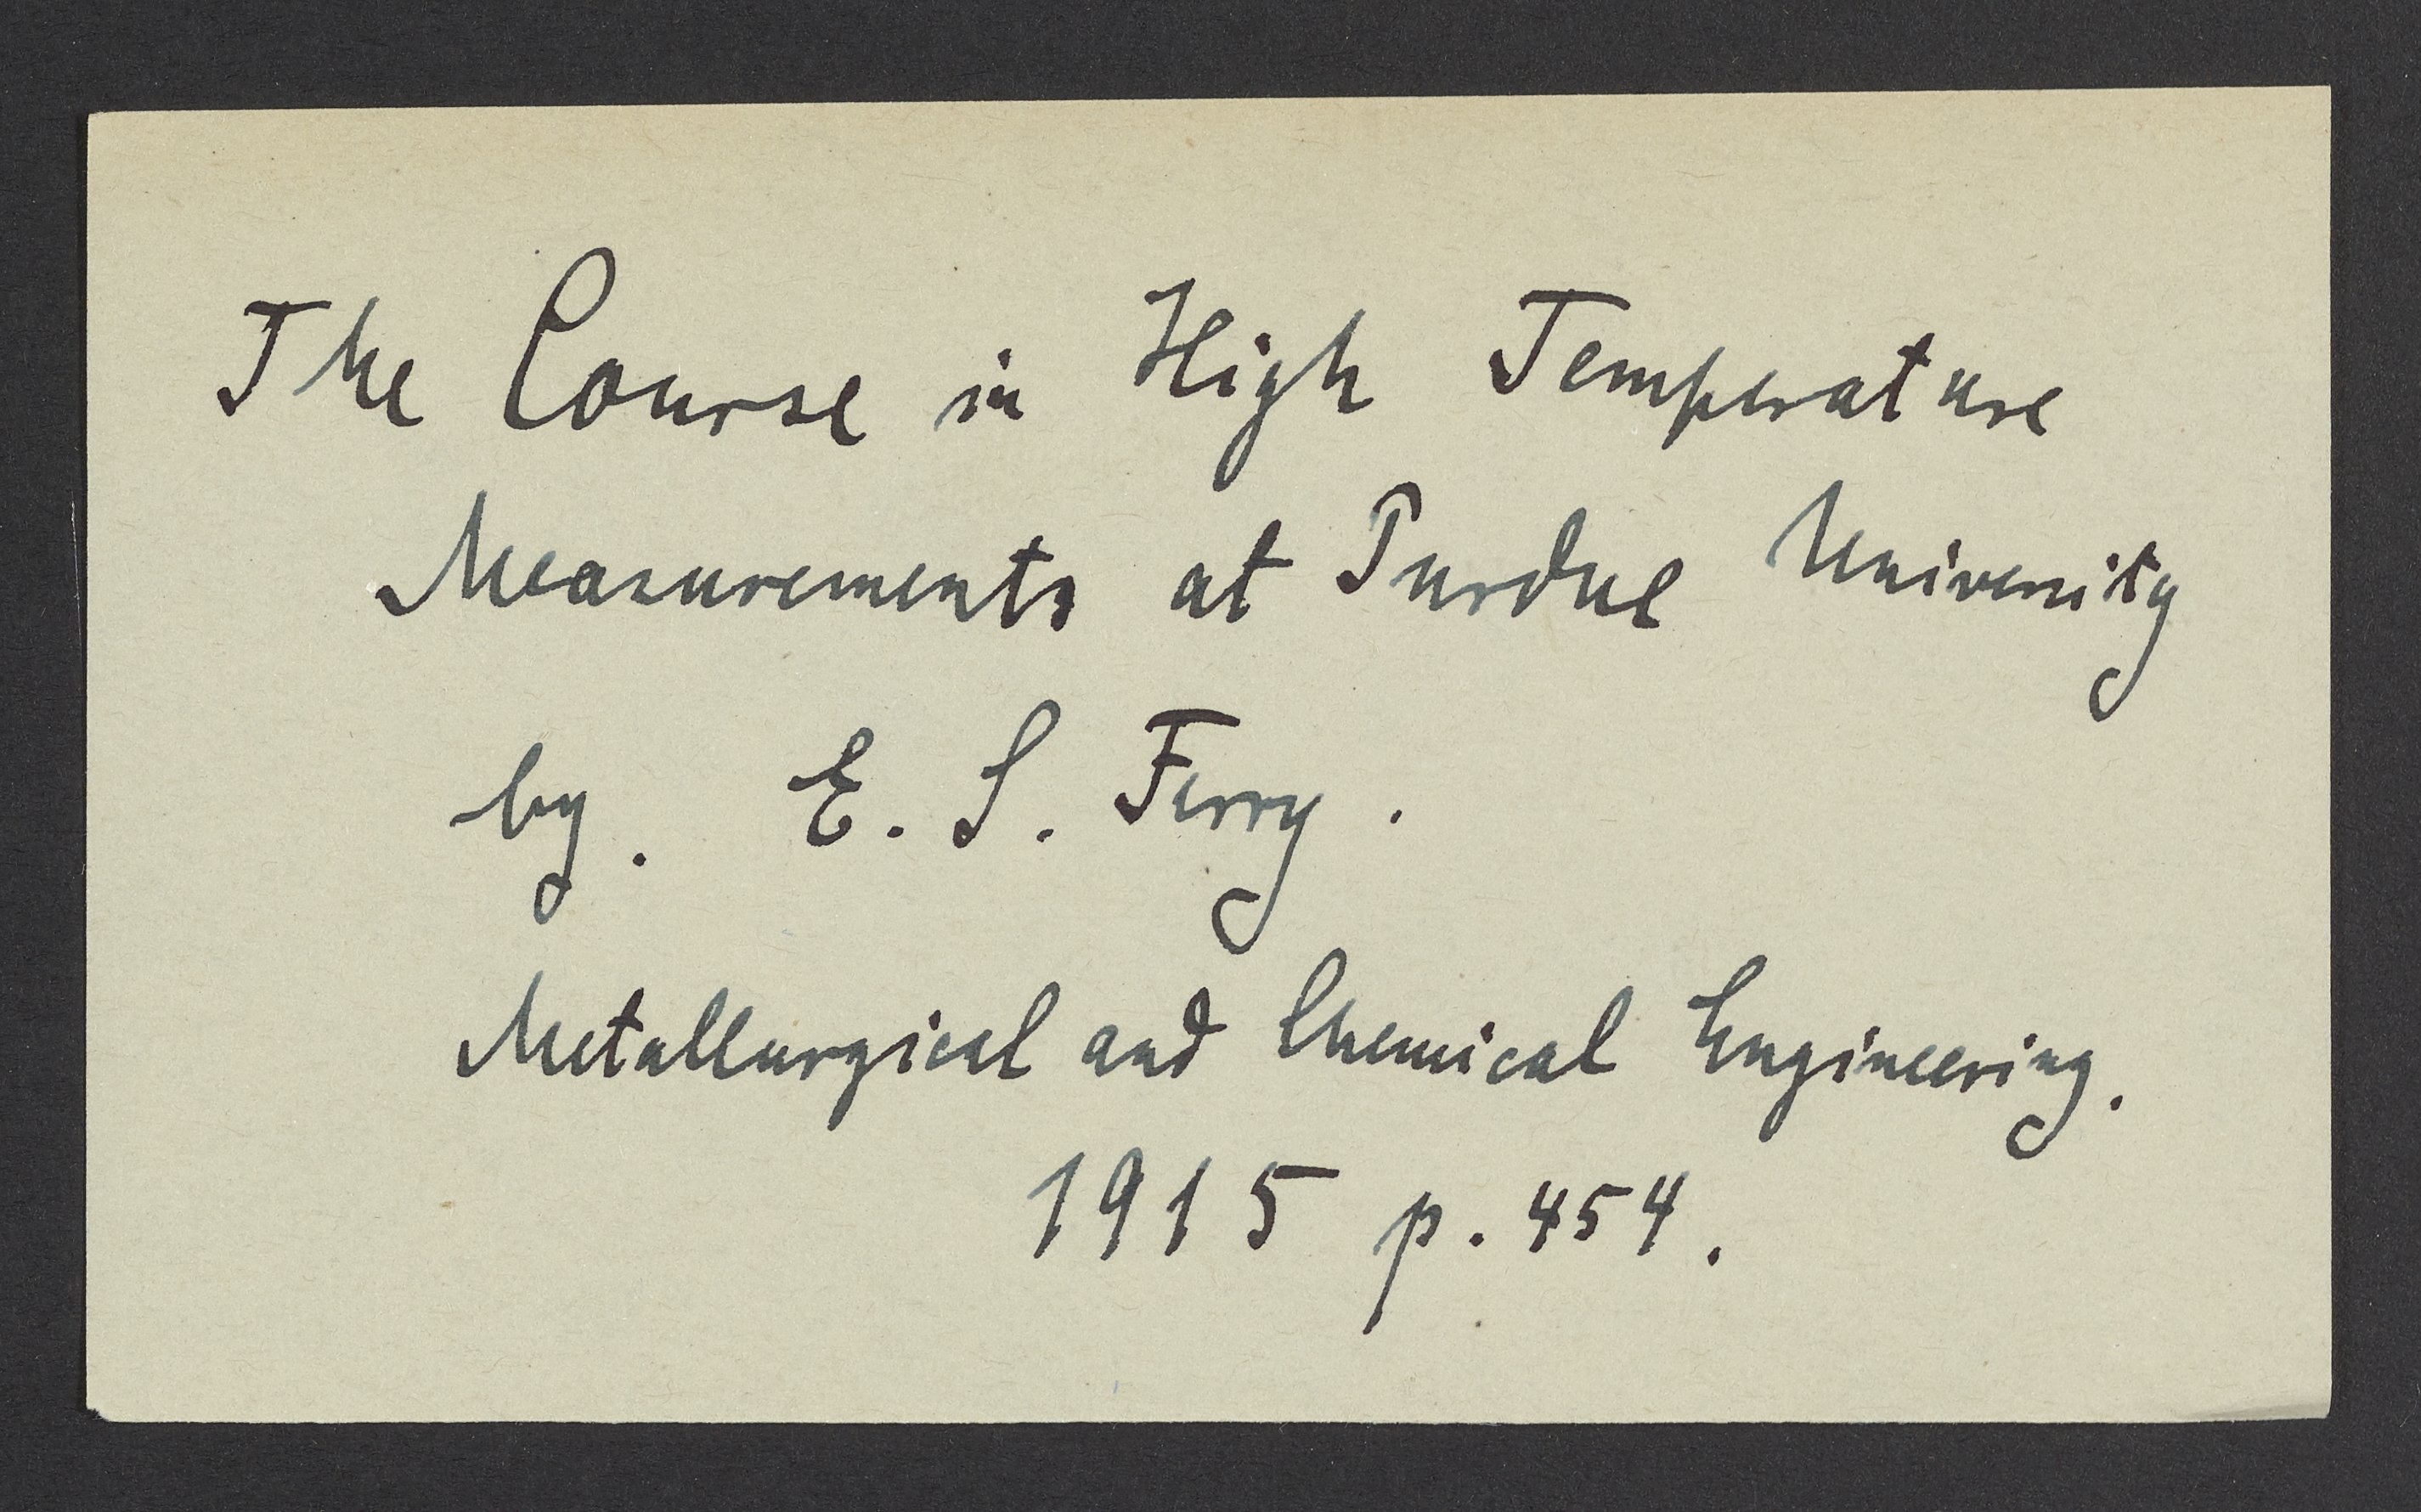 The Course in High Temperature
Measurements at Purdue University
by. E. S. Ferry.
Metallurgical and Chemical Engineering.
1915 p. 454.